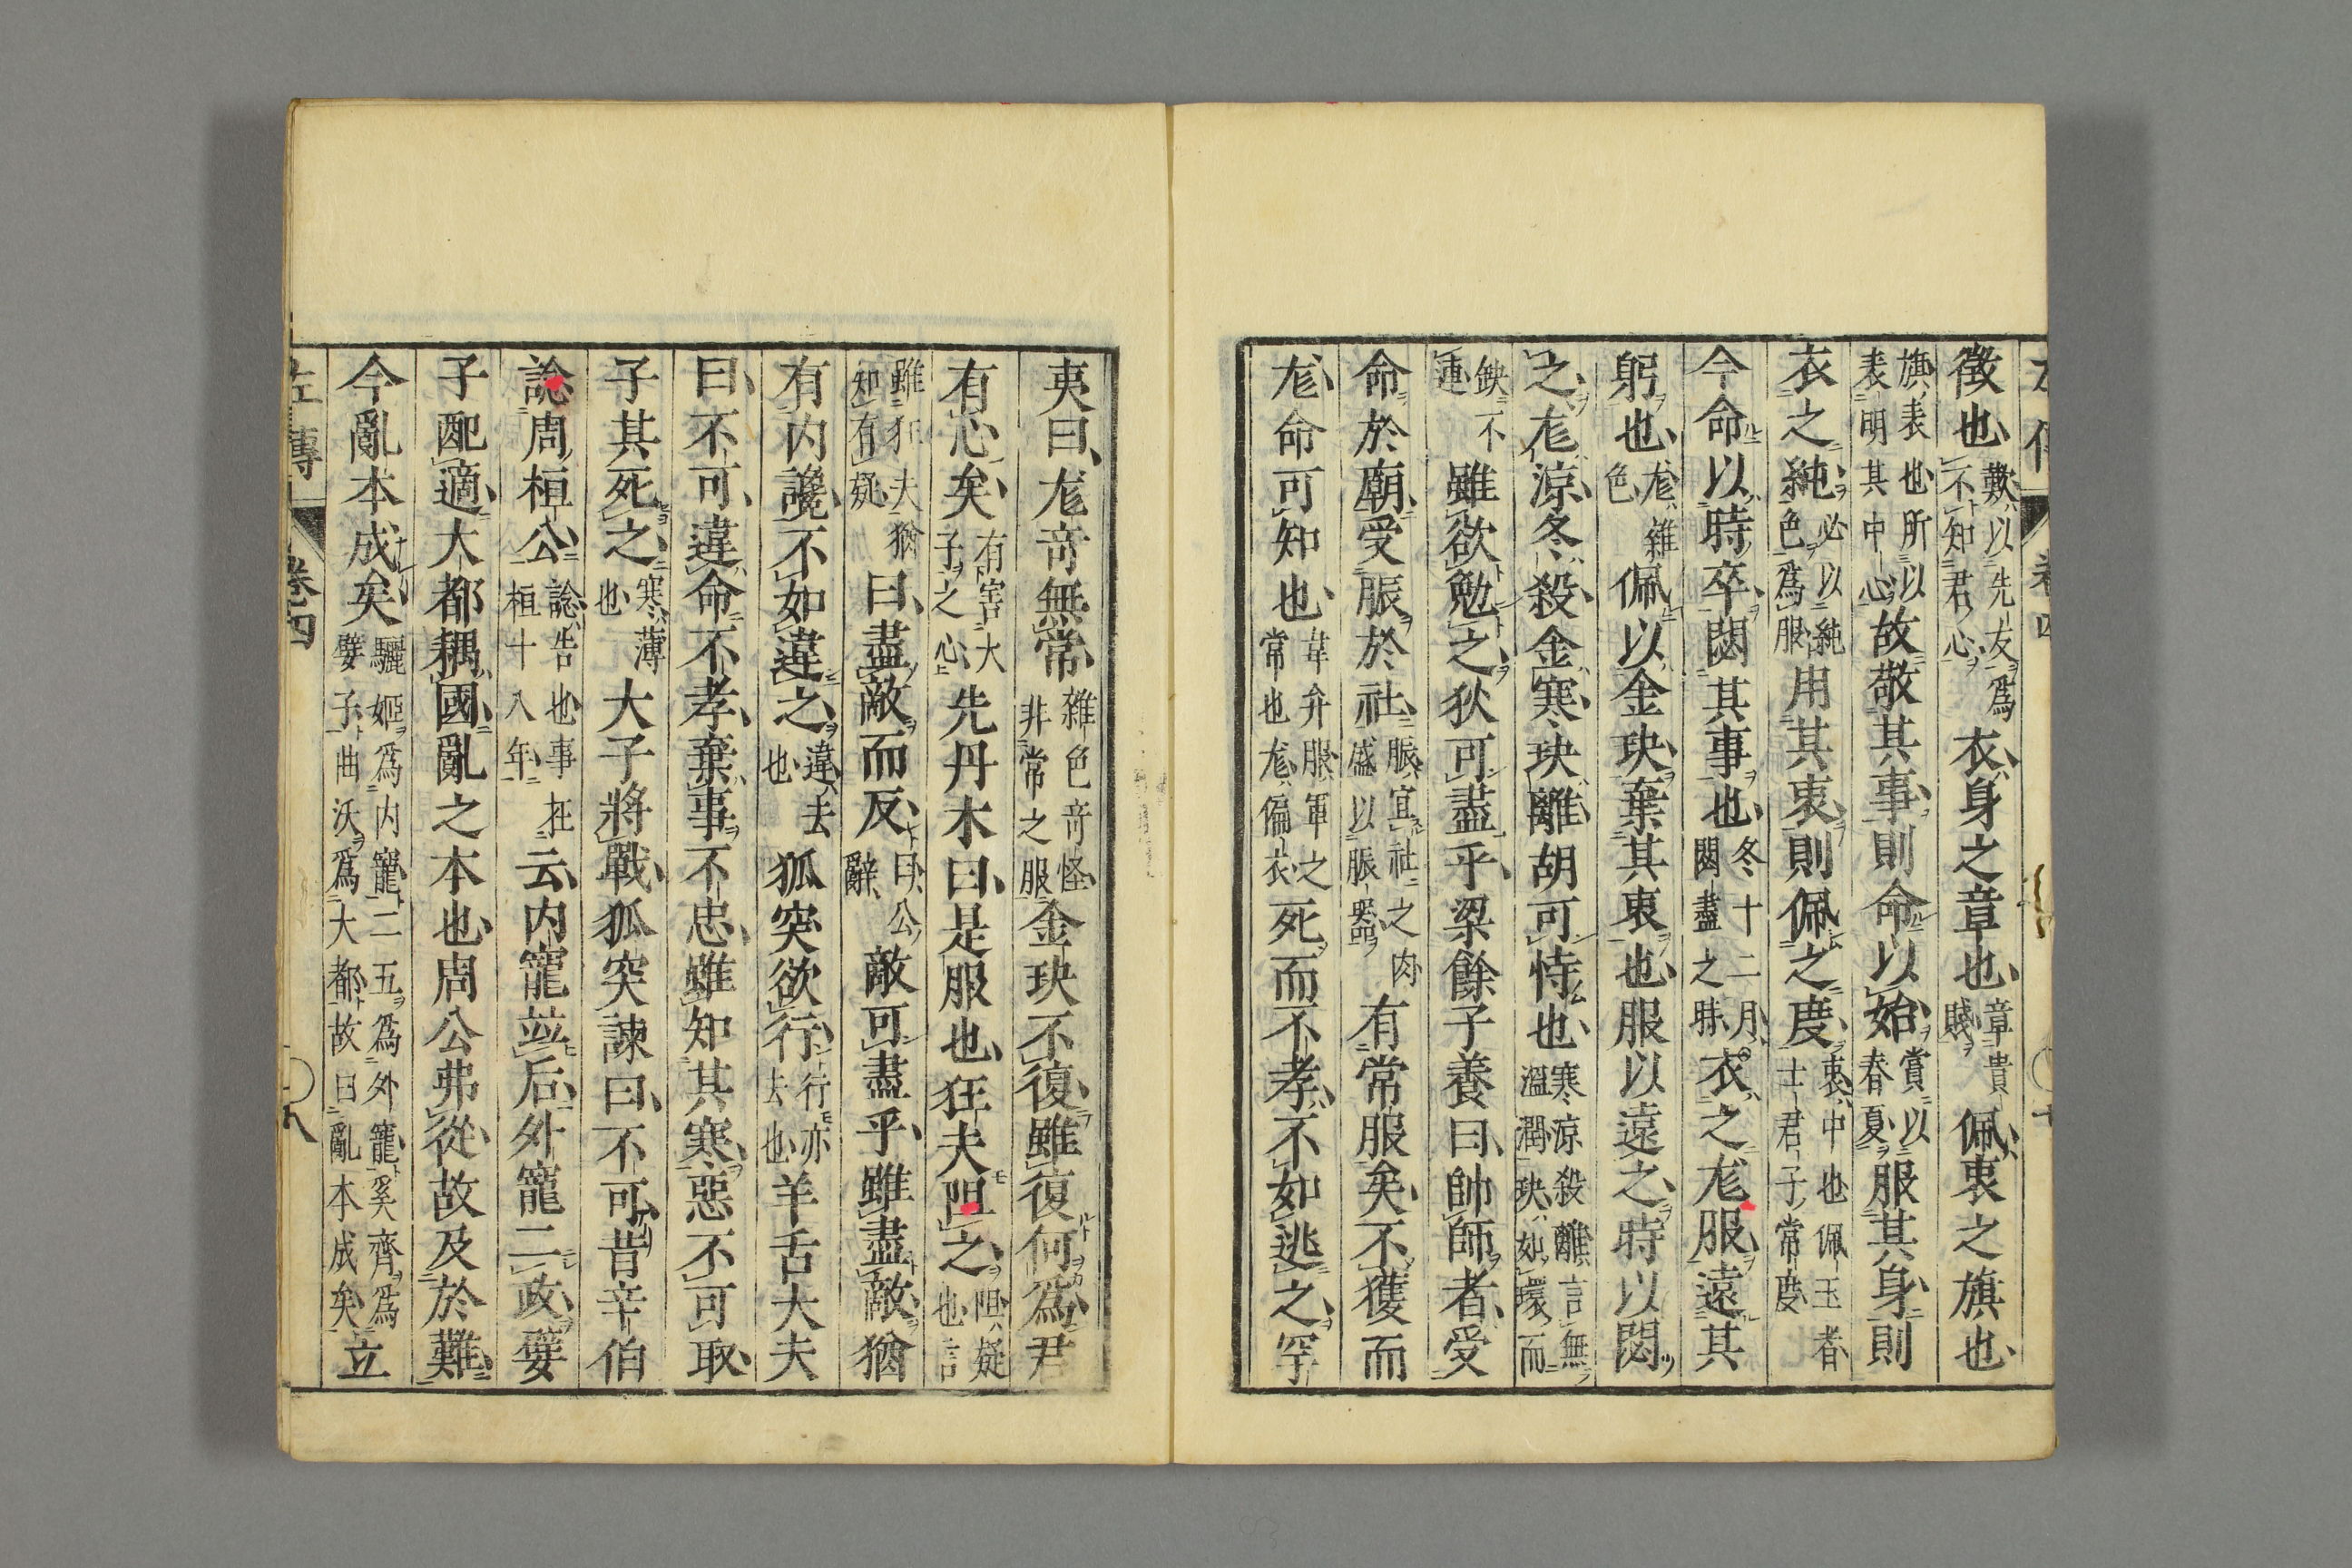 徵也歎以先友爲不知君心衣身之章也章貴賤佩衷之旗也
旗表也所以表明其中心故敬其事則命以始賞以春夏服其身則
衣之純必以純色爲服用其衷則佩之度衷中也佩玉者士君子常度
今命以時卒閟其事也冬十二月閟盡之時衣之尨服遠其
躬也尨雜色佩以金玦棄其衷也服以遠之時以閟
之尨涼冬殺金寒玦離胡可恃也寒涼殺離言無溫潤玦如環而
缺不連雖欲勉之狄可盡乎梁餘子養曰帥師者受
命於廟受脤於社脤宜社之肉盛以脤器有常服矣不獲而
尨命可知也韋弁服軍之常也尨偏衣死而不孝不如逃之罕
夷曰尨奇無常雜色奇怪非常之服金玦不復雖復何爲君
有心矣有害大子之心先丹木曰是服也狂夫阻之阻疑也言
雖狂夫猶知有疑曰盡敵而反曰公辭敵可盡乎雖盡敵猶
有内讒不如違之違去也狐突欲行行亦去也羊舌大夫
曰不可違命不孝棄事不忠雖知其寒惡不可取
子其死之寒薄也大子將戰狐突諫曰不可昔辛伯
諗周桓公諗告也事在桓十八年云内寵並后外寵二政嬖
子配適大都耦國亂之本也周公弗從故及於難
今亂本成矣驪姬爲内寵二五爲外寵奚齊爲嬖子曲沃爲大都故曰亂本成矣立
左傳 卷四 八